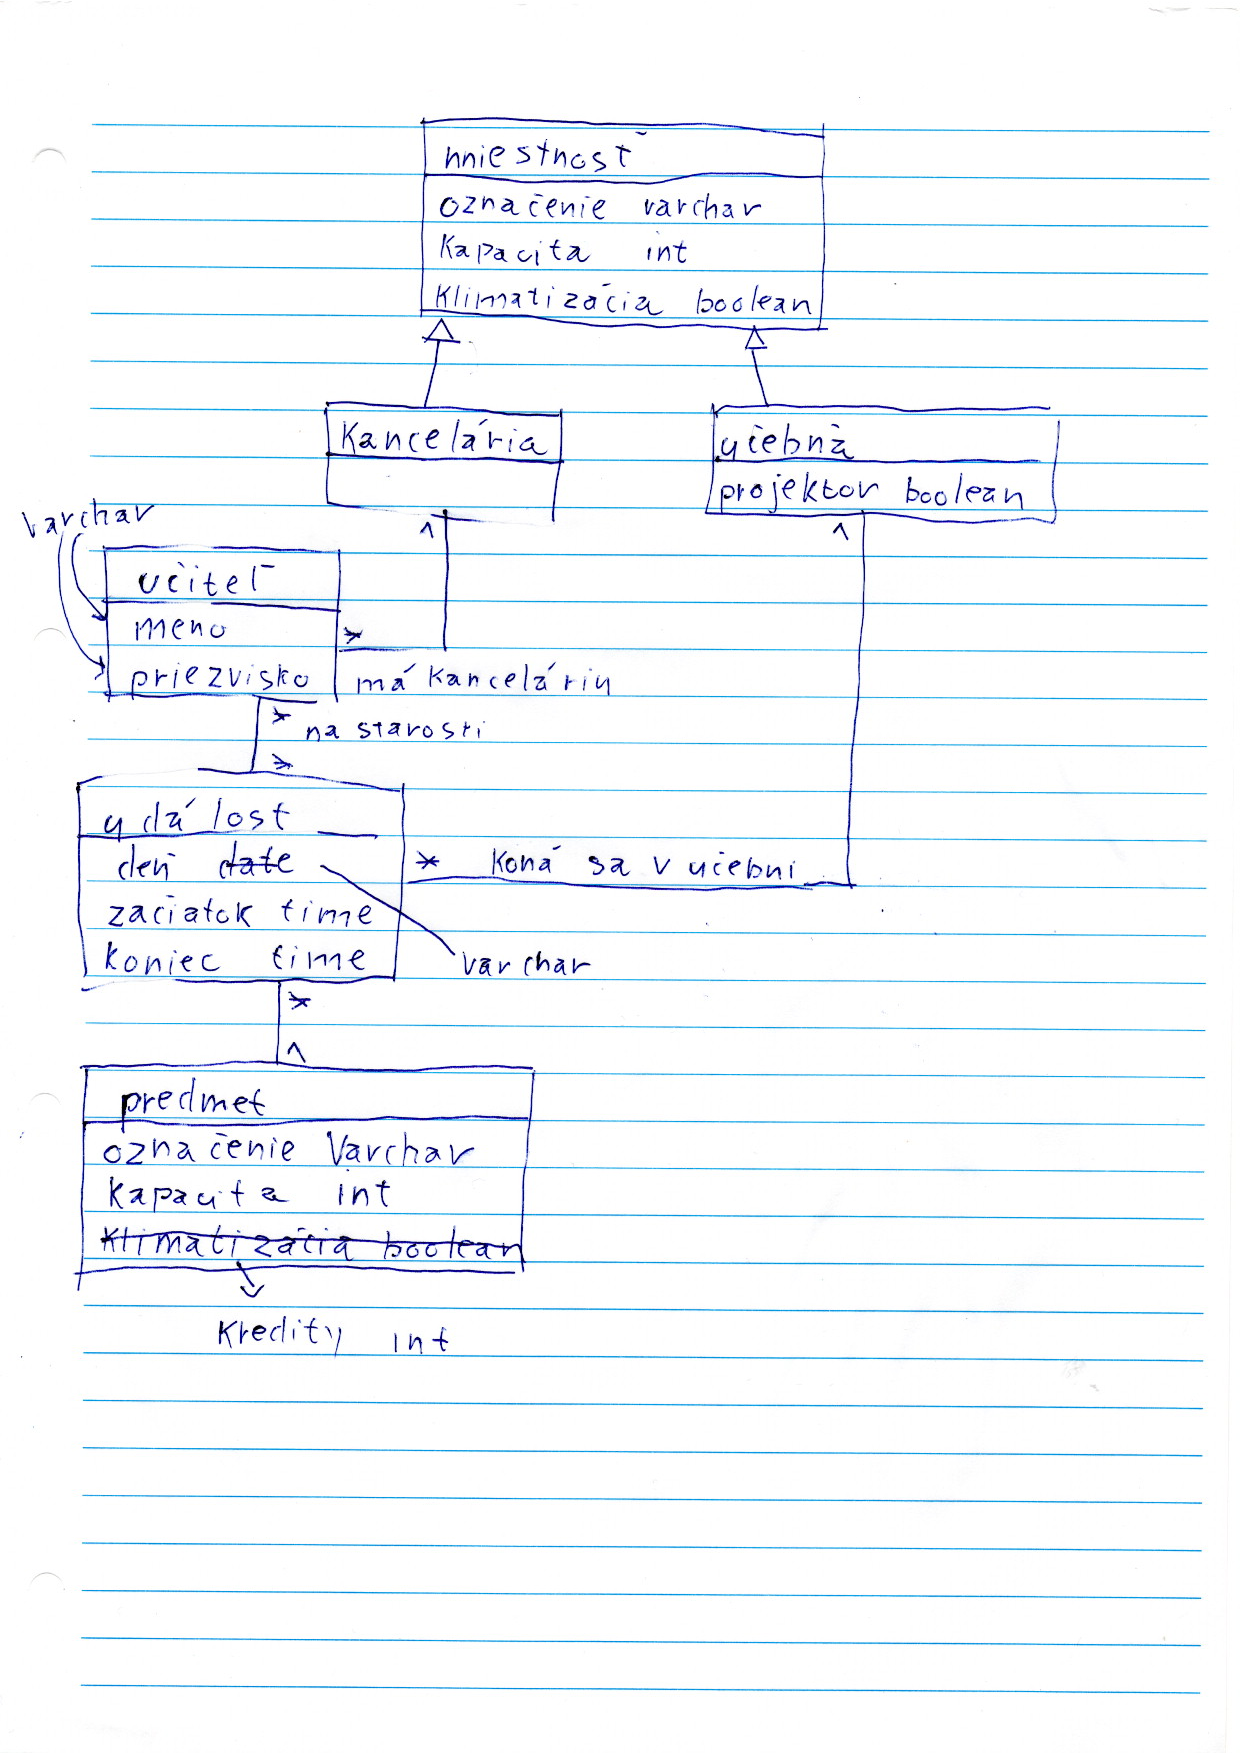 miestnosť
označenie varchar
Kapacita int
Klimatizácia boolean
Kancelária
učebňa
projektor boolean
varchar
učiteľ
meno
priezvisko
*
má kanceláriu
*
na starosti
*
událosť
deň date
začiatok time
koniec time
* Koná sa v učebni
varchar
*
1
1
1
predmet
označenie Varchar
Kapacita int
Klimatizácia boolean
Kredity int